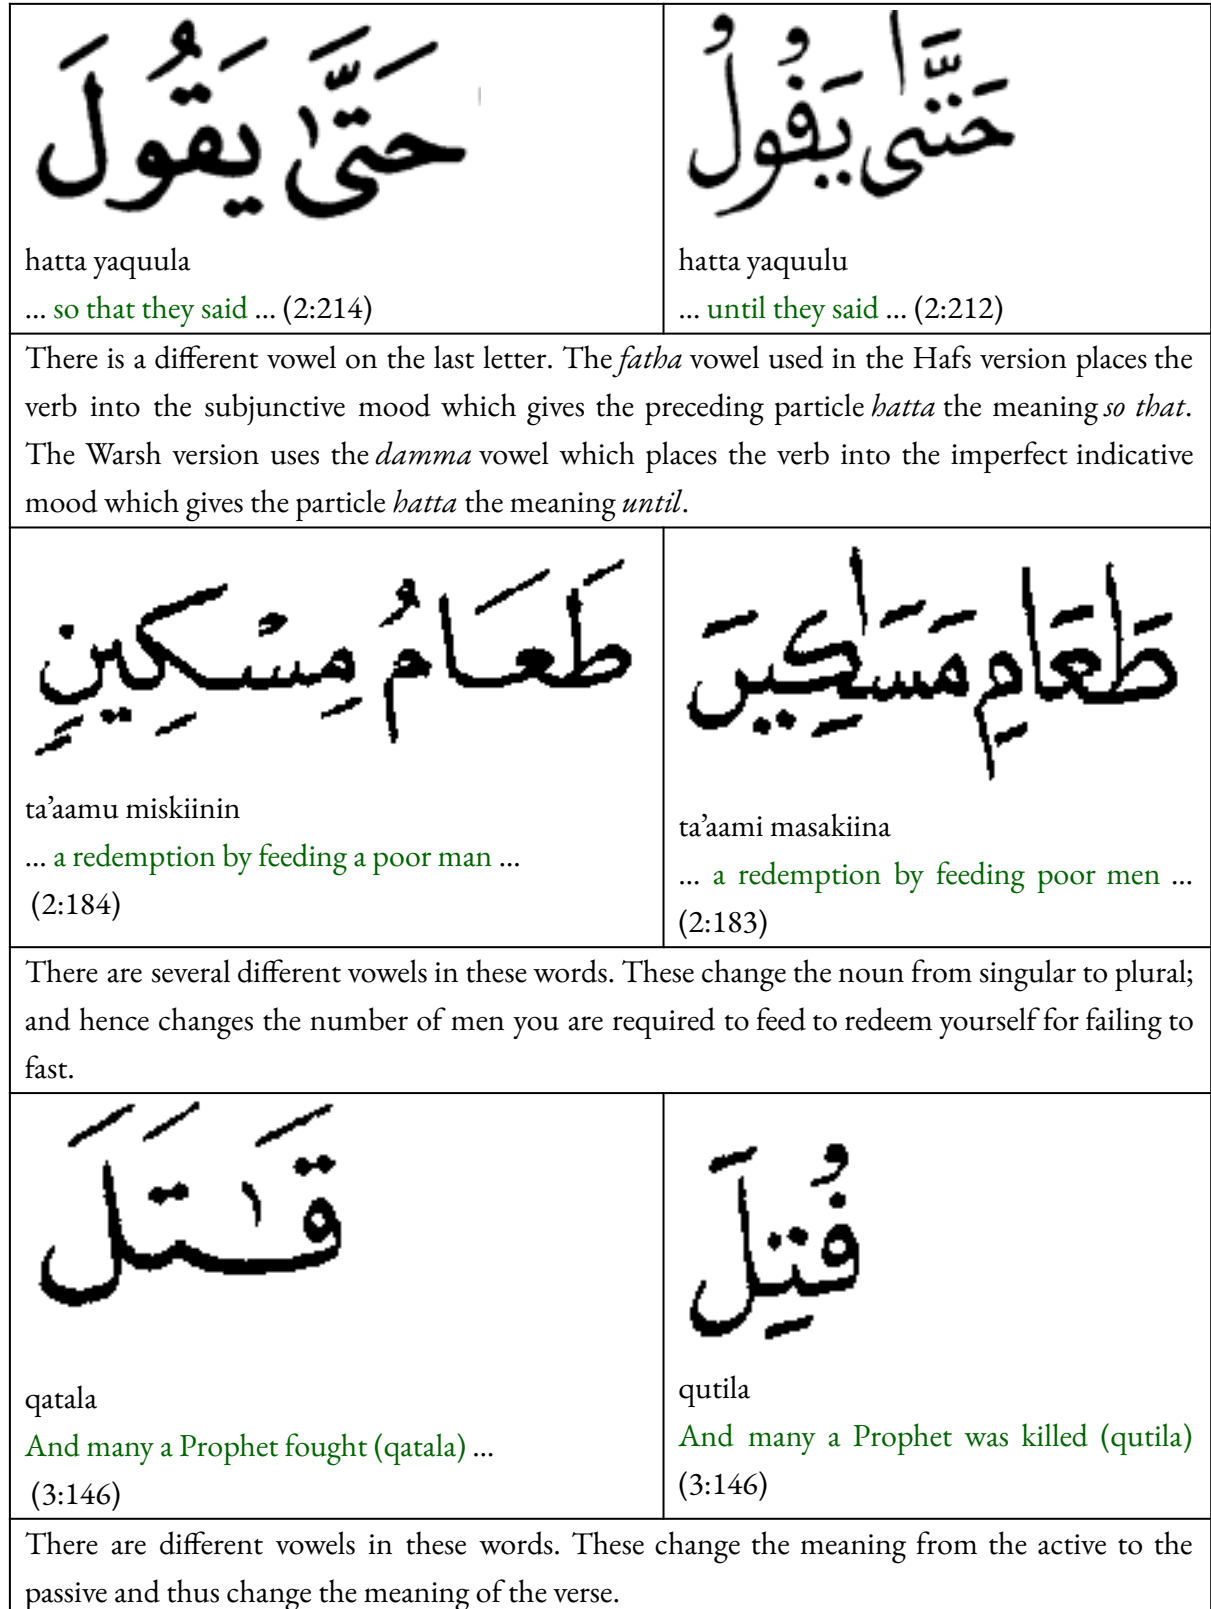 حَتَّىٰ يَقُولَ
hatta yaquula
... so that they said ... (2:214)
حَتَّىٰ يَڧُولُ
hatta yaquulu
... until they said ... (2:212)
There is a different vowel on the last letter. The fatha vowel used in the Hafs version places the
verb into the subjunctive mood which gives the preceding particle hatta the meaning so that.
The Warsh version uses the damma vowel which places the verb into the imperfect indicative
mood which gives the particle hatta the meaning until.
طَعَامُ مِسْكِينٍ
ta’aamu miskiinin
... a redemption by feeding a poor man ...
(2:184)
طَعَامِ مَسَٰكِينَ
ta’aami masakiina
... a redemption by feeding poor men ...
(2:183)
There are several different vowels in these words. These change the noun from singular to plural;
and hence changes the number of men you are required to feed to redeem yourself for failing to
fast.
قَٰتَلَ
qatala
And many a Prophet fought (qatala) ...
(3:146)
ڧُتِلَ
qutila
And many a Prophet was killed (qutila)
(3:146)
There are different vowels in these words. These change the meaning from the active to the
passive and thus change the meaning of the verse.